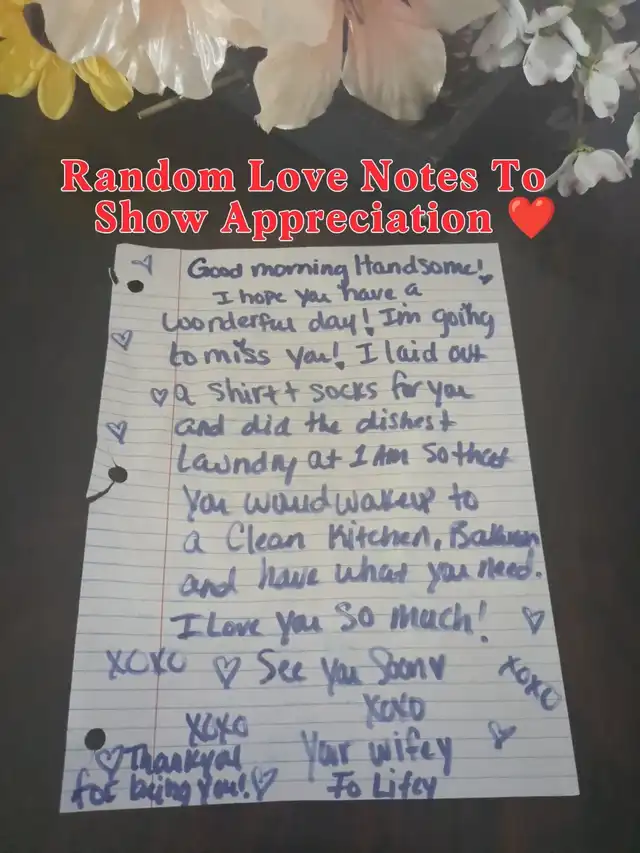 Random Love Notes To
Show Appreciation ❤️
Good morning Handsome!
I hope you have a
wonderful day! I'm going
to miss you! I laid out
a shirt + socks for you
and did the dishes +
Laundry at 1 AM so that
you would wakeup to
a Clean Kitchen, Bathroom
and have what you need.
I Love you So much!
XOXO ♡ See you Soon ♥ XOXO
XOXO
XOXO
♡ Thank you
for being you! ♡
Your wifey
To Lifey